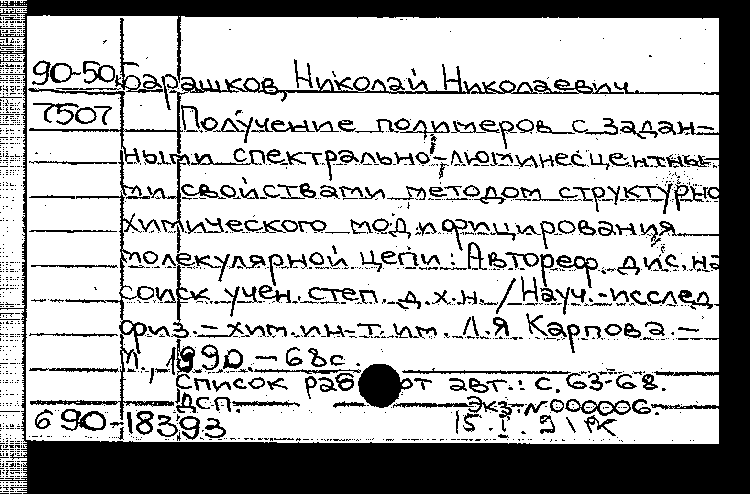 90-50 Барашков, Николай Николаевич.
7507 Получение полимеров с задан-
ными спектрально-люминесцентны-
ми свойствами методом структурно
химического модифицирования
молекулярной цепи: Автореф. дис. на
соиск учен. степ. д.х.н. / Науч.-исслед
физ.-хим. ин-т. им. Л.Я Карпова.-
1990.-68с.
Список работ авт.: с. 63-68.
ДСП. Экз. N 000006.
690-18393 15.I.91 РК